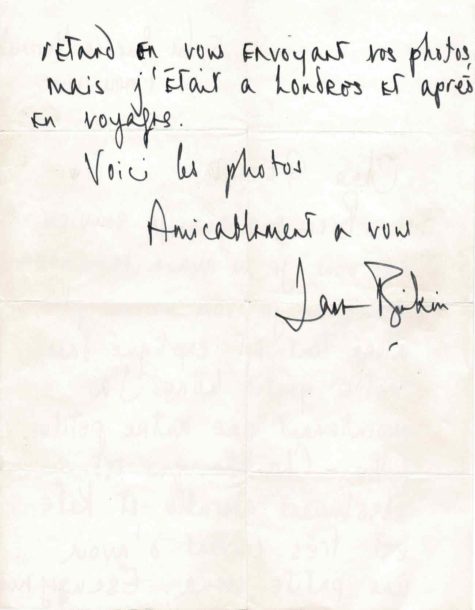 retard en vous envoyant vos photos
mais j'était a Londres et après
en voyages.
Voici les photos
Amicallement a vous
Jane Birkin